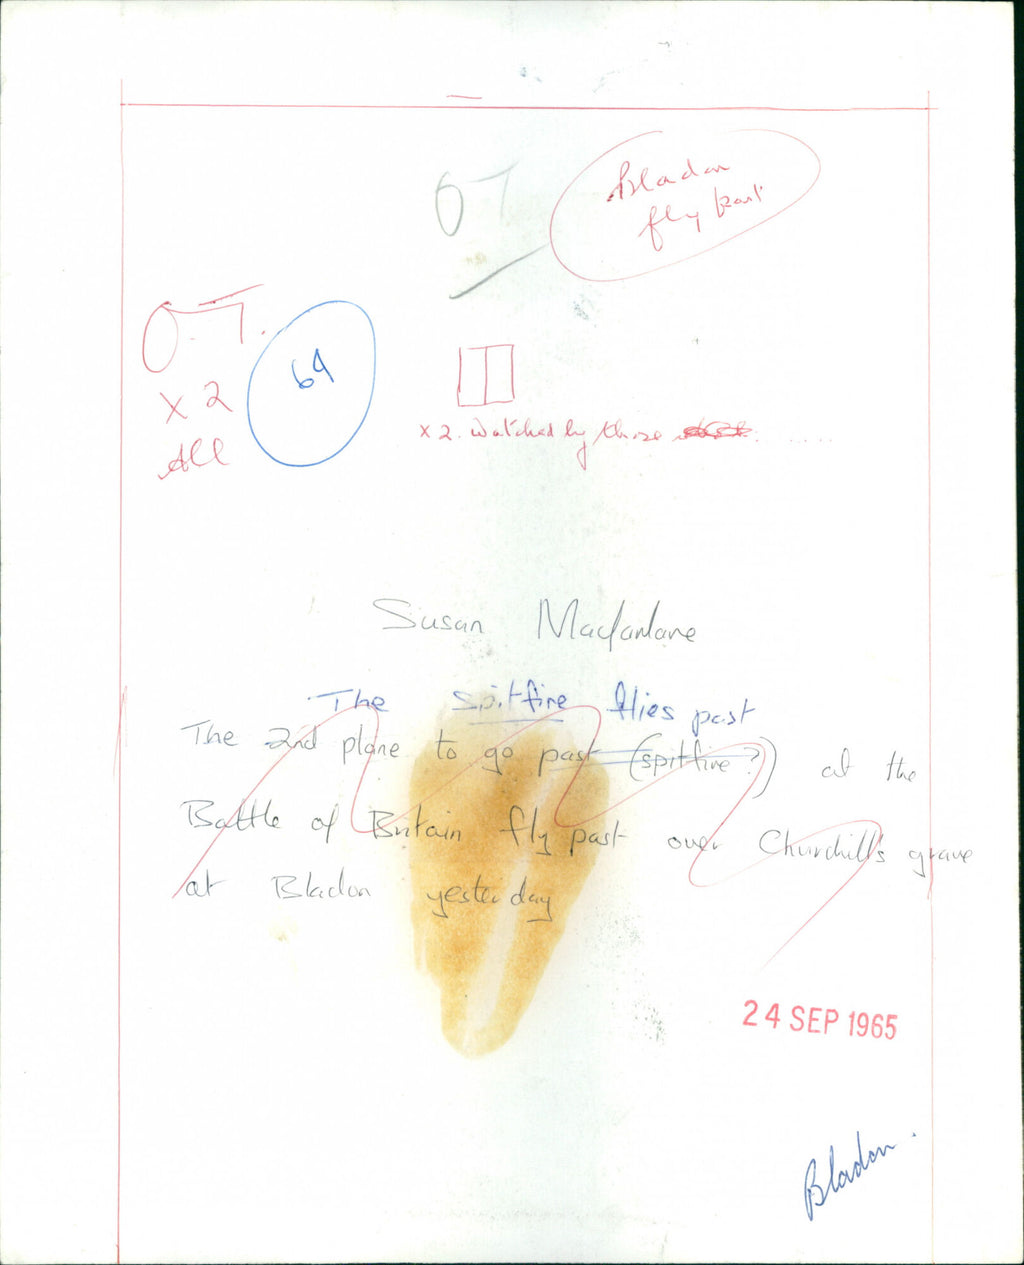 OT
Bladon
fly past
O.T.
x 2
All
64
x 2. watched by those
Susan Macfarlane
The spitfire flies past
The 2nd plane to go past (spitfire?) at the
Battle of Britain fly past over Churchill's grave
at Bladon yesterday
24 SEP 1965
Bladon.